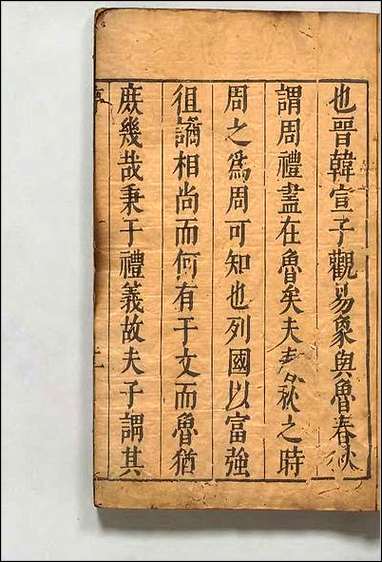 也晋韓宣子觀易象與魯春秋
謂周禮盡在魯矣夫春秋之時
周之爲周可知也列國以富強
徂譎相尚而何有于文而魯猶
庶幾哉秉于禮義故夫子謂其